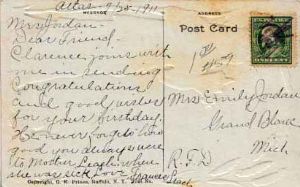 Atlas 9/25-1911
MESSAGE
ADDRESS
Post Card
Mrs Jordan.
Dear Friend
Clarence joins with
me in sending
Congratulations
and good wishes
for your birthday.
He never forgets how
good you always were
to Mother League when
she was sick. Love
Mrs Emily Jordan
Grand Blanc
Mich
R.F.D
Copyright, G. W.
Buffalo, N. Y.